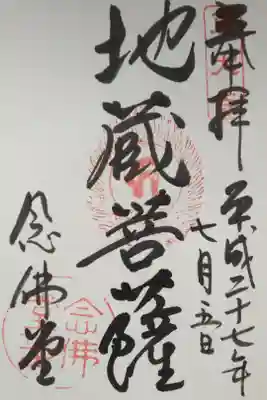 奉拝
平成二十七年
七月五日
地蔵菩薩
念佛堂